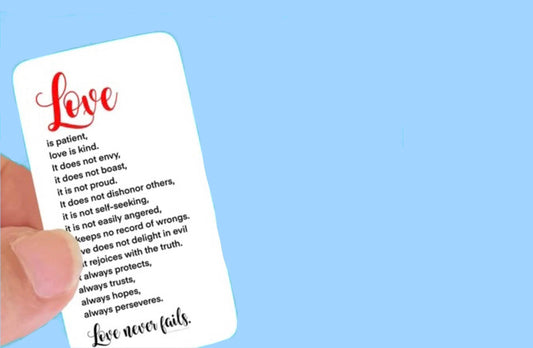 Love
is patient,
love is kind.
It does not envy,
it does not boast,
it is not proud.
It does not dishonor others,
it is not self-seeking,
it is not easily angered,
keeps no record of wrongs.
ve does not delight in evil
it rejoices with the truth.
always protects,
always trusts,
always hopes,
always perseveres.
Love never fails.